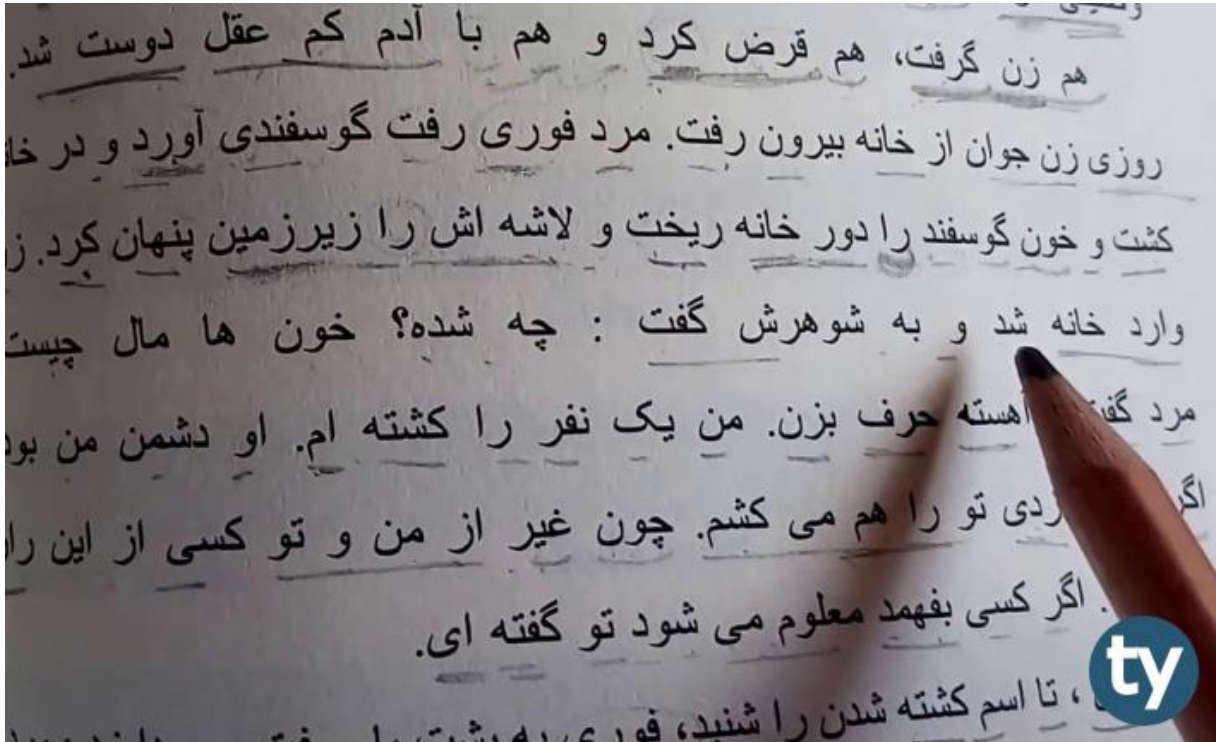 هم زن گرفت، هم قرض کرد و هم با آدم کم عقل دوست شد.
روزی زن جوان از خانه بیرون رفت. مرد فوری رفت گوسفندی آورد و در
کشت و خون گوسفند را دور خانه ریخت و لاشه اش را زیرزمین پنهان کرد.
وارد خانه شد و به شوهرش گفت : چه شده؟ خون ها مال چیست
مرد آهسته حرف بزن. من یک نفر را کشته ام. او دشمن من
تو را هم می کشم. چون غیر از من و تو کسی از این
. اگر کسی بفهمد معلوم می شود تو گفته ای.
، تا اسم کشته شدن را شنید، فوری به
ty